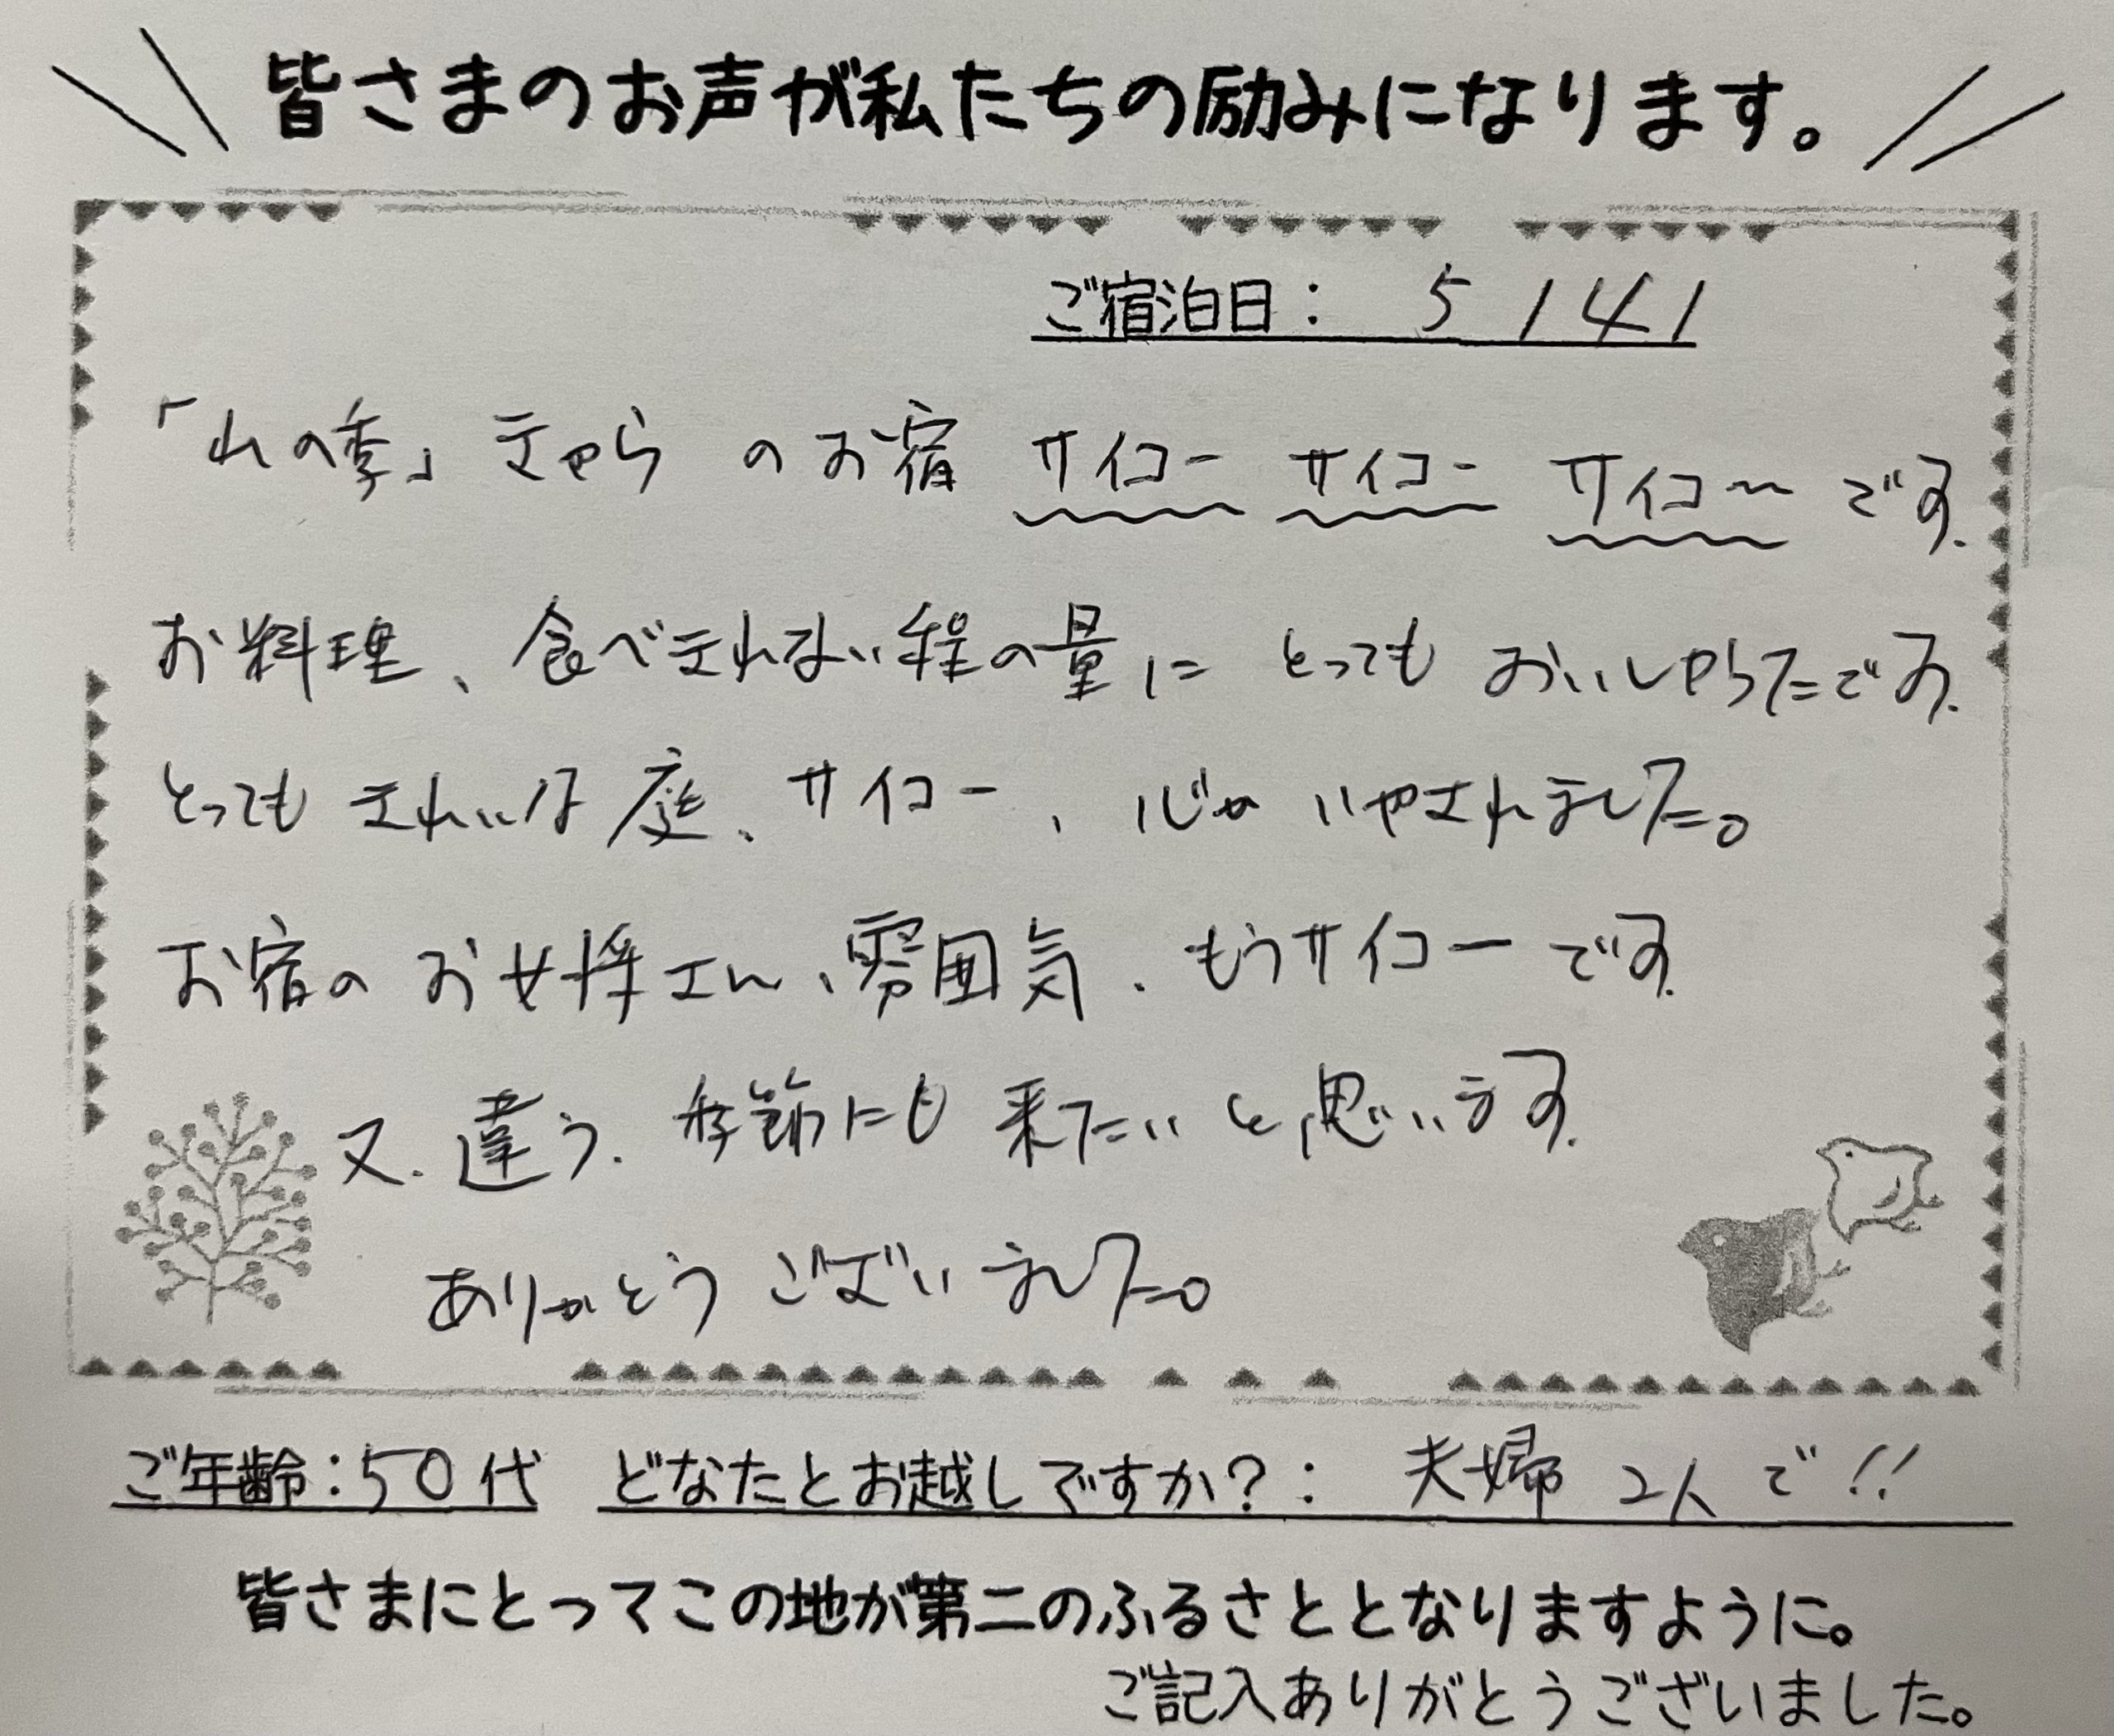 皆さまのお声が私たちの励みになります。
ご宿泊日: 5/4/
のお宿 サイコー サイコー サイコ〜 です.
お料理、食べきれない程の量に とっても おいしかったです.
とっても きれいな 庭、サイコー、心が いやされました。
お宿の お女将さん、雰囲気、もうサイコーです.
又、違う、季節にも 来たいと思います.
ありがとう ございました。
ご年齢:50代 どなたとお越しですか?: 夫婦 2人 で!!
皆さまにとってこの地が第二のふるさととなりますように。
ご記入ありがとうございました。